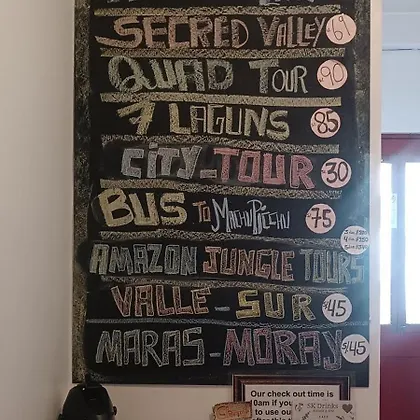 SECRED VALLEY 69
QUAD TOUR 90
7 LAGUNS 85
CITY-TOUR 30
BUS TO MACHU PICCHU 75
AMAZON JUNGLE TOURS
VALLE-SUR 45
MARAS-MORAY S/45
Our check out time is
10am if you
to use ou
SK Drinks